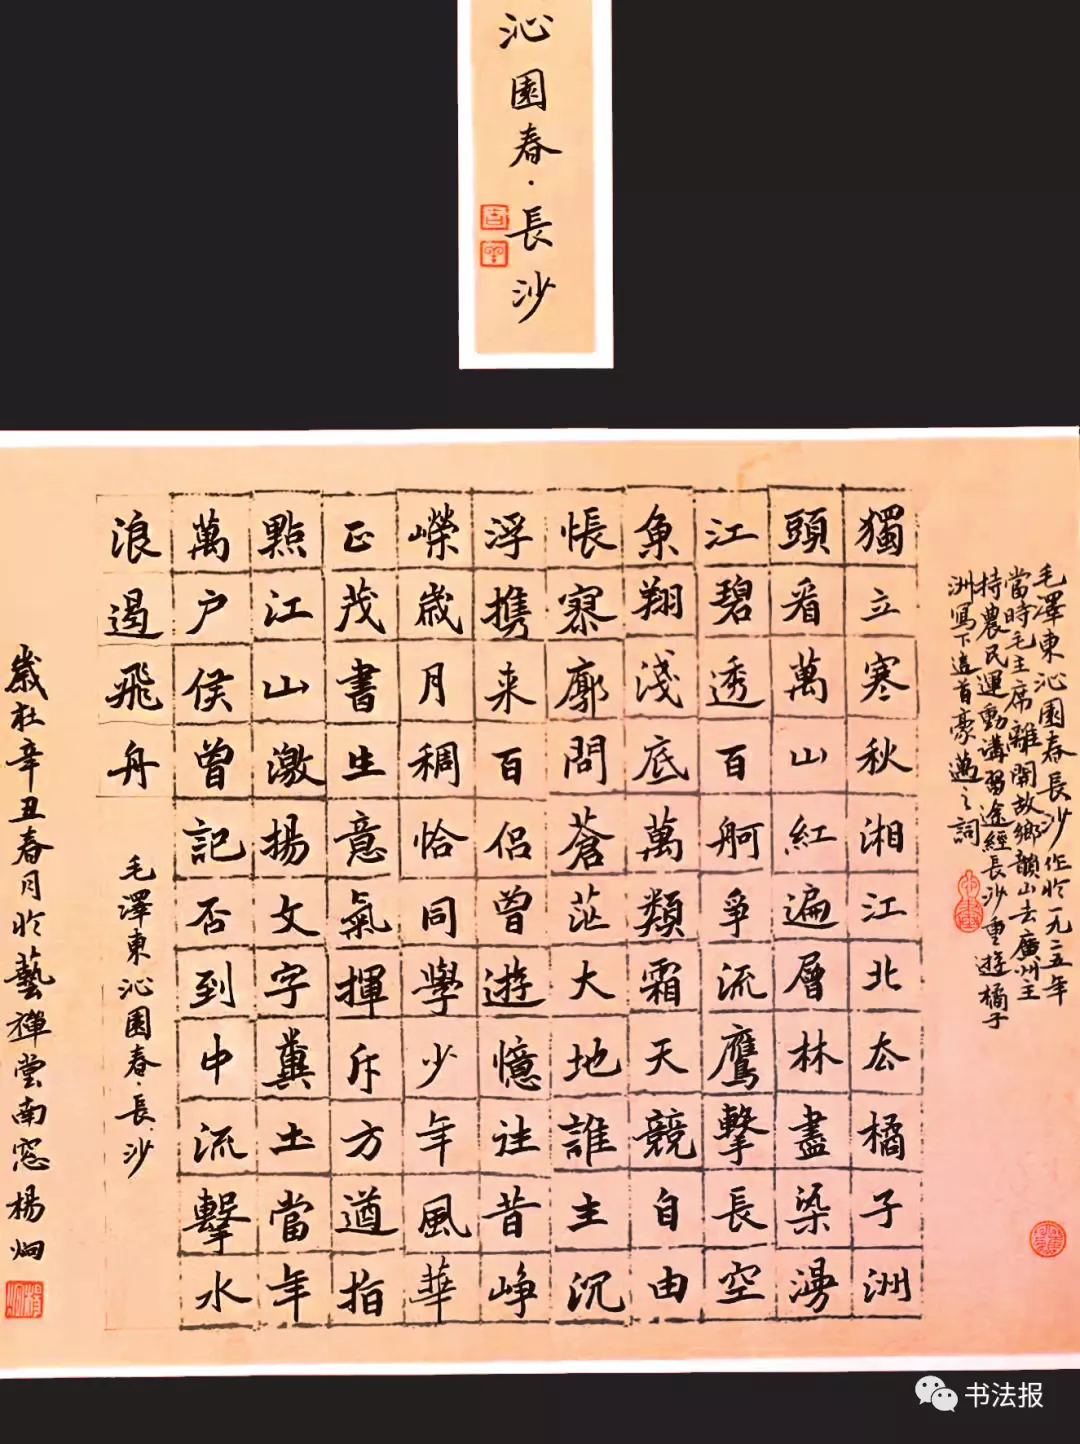 沁園春·長沙
毛澤東沁園春長沙作於一九二五年
當時毛主席離開故鄉韻山去廣州主
持農民運動講習途經長沙重遊橘子
洲寫下這首豪邁之詞
獨立寒秋湘江北去橘子洲
頭看萬山紅遍層林盡染漫
江碧透百舸爭流鷹擊長空
魚翔淺底萬類霜天競自由
悵寥廓問蒼茫大地誰主沉
浮携來百侶曾遊憶往昔崢
嶸歲月稠恰同學少年風華
正茂書生意氣揮斥方遒指
點江山激揚文字糞土當年
萬户侯曾記否到中流擊水
浪遏飛舟
毛澤東沁園春·長沙
歲在辛丑春月於藝禪堂南窓楊炯
书法报